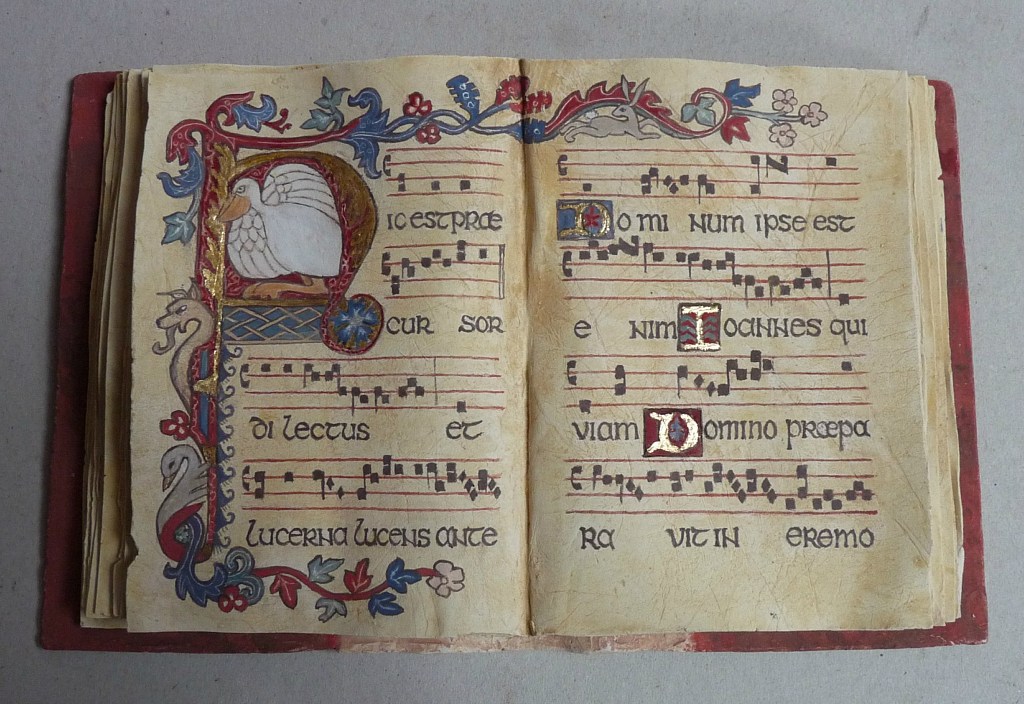 PIC EST PRÆ
CUR SOR
DI LECTUS ET
LUCERNA LUCENS ANTE
DO MI NUM IPSE EST
E NIM IOANNES QUI
VIAM DOMINO PRÆPA
RA VIT IN EREMO